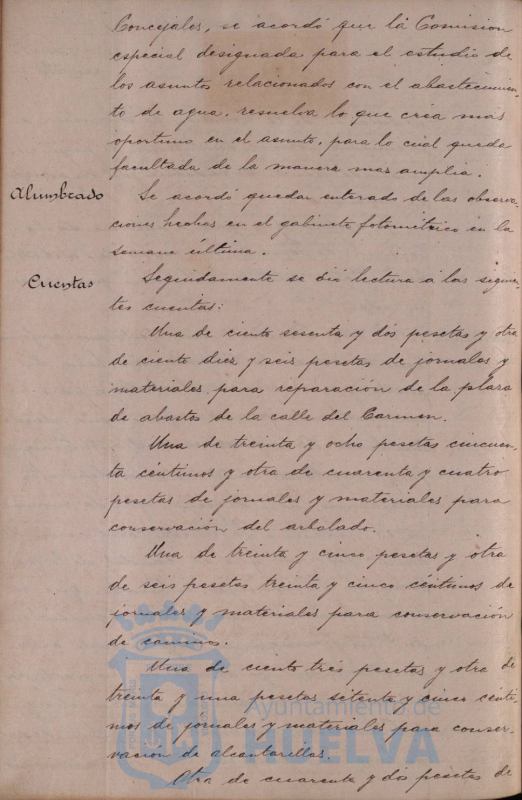 Concejales, se acordó que la Comision
especial designada para el estudio de
los asuntos relacionados con el abastecimien-
to de agua, resuelva lo que crea mas
oportuno en el asunto, para lo cual queda
facultada de la manera mas amplia.
Alumbrado
Se acordó quedar enterado de las observa-
ciones hechas en el gabinete fotométrico en la
semana última.
Cuentas
Seguidamente se dió lectura á las siguien-
tes cuentas:
Una de ciento sesenta y dos pesetas y otra
de ciento diez y seis pesetas de jornales y
materiales para reparación de la plaza
de abastos de la calle del Carmen.
Una de treinta y ocho pesetas cincuen-
ta céntimos y otra de cuarenta y cuatro
pesetas de jornales y materiales para
conservación del arbolado.
Una de treinta y cinco pesetas y otra
de seis pesetas treinta y cinco céntimos de
jornales y materiales para conservación
de caminos.
Una de ciento tres pesetas y otra de
treinta y una pesetas setenta y cinco cénti-
mos de jornales y materiales para conser-
vación de alcantarillas.
Otra de cuarenta y dos pesetas de
Ayuntamiento de
HUELVA